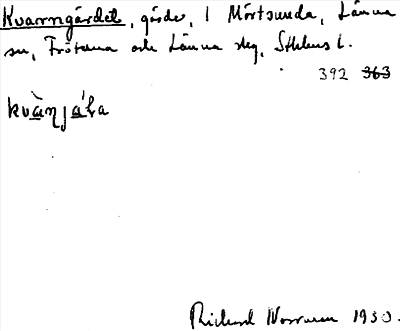 Kvarngärdet, gärde, i Mörtsunda, Länna
sn, Frötuna och Länna skg, Sthlms l.
392 363
kvànjáɫa
Richard Norrman 1930.